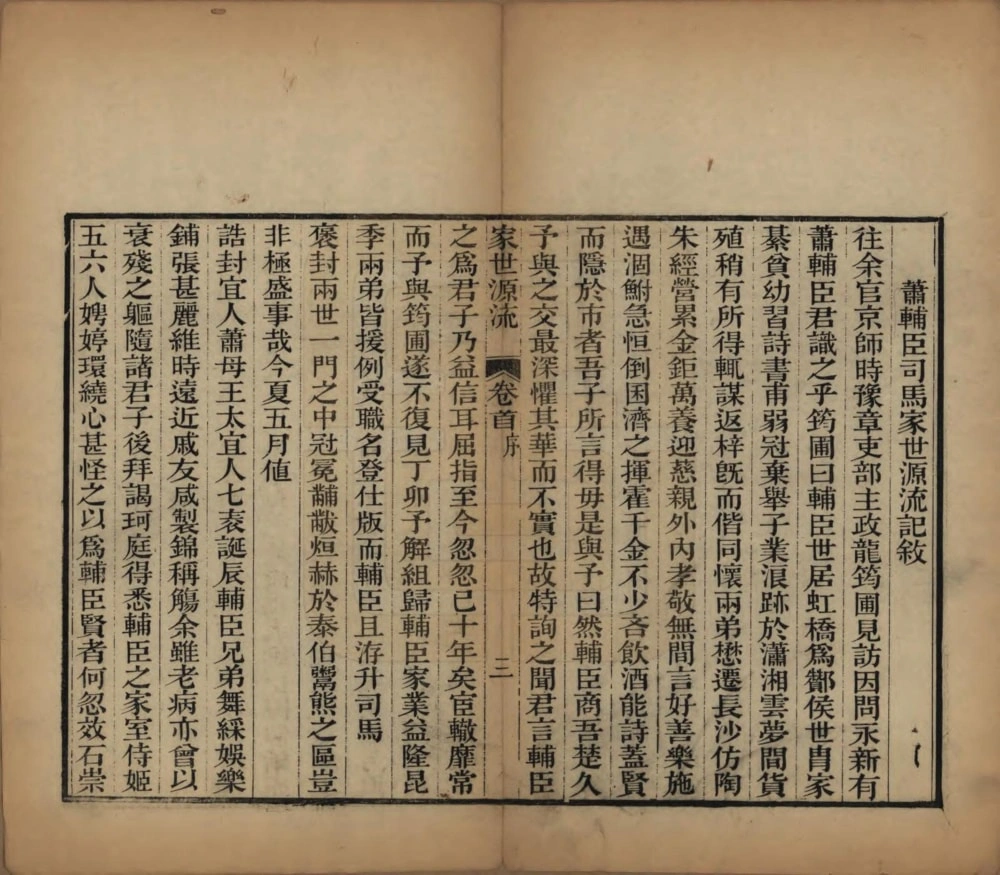 蕭輔臣司馬家世源流記敘
往余官京師時豫章吏部主政龍筠圃見訪因問永新有
蕭輔臣君識之乎筠圃曰輔臣世居虹橋爲酇侯世胄家
綦貧幼習詩書甫弱冠棄舉子業浪跡於瀟湘雲夢間貨
殖稍有所得輒謀返梓旣而偕同懷兩弟懋遷長沙仿陶
朱經營累金鉅萬養迎慈親外內孝敬無間言好善樂施
遇涸鮒急恒倒囷濟之揮霍千金不少吝飲酒能詩蓋賢
而隱於市者吾子所言得毋是與子曰然輔臣商吾楚久
予與之交最深懼其華而不實也故特詢之聞君言輔臣
家世源流 卷首 序 三
之爲君子乃益信耳屈指至今忽忽已十年矣宦轍靡常
而子與筠圃遂不復見丁卯予解組歸輔臣家業益隆昆
季兩弟皆援例受職名登仕版而輔臣且洊升司馬
褒封兩世一門之中冠冕黼黻烜赫於泰伯鬻熊之區豈
非極盛事哉今夏五月値
誥封宜人蕭母王太宜人七袠誕辰輔臣兄弟舞綵娛樂
鋪張甚麗維時遠近戚友咸製錦稱觴余雖老病亦曾以
衰殘之軀隨諸君子後拜謁珂庭得悉輔臣之家室侍姬
五六人娉婷環繞心甚怪之以爲輔臣賢者何忽效石崇